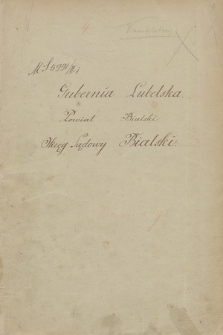 Gubernia Lubelska
Powiat Bialski
Okręg Sądowy Bialski